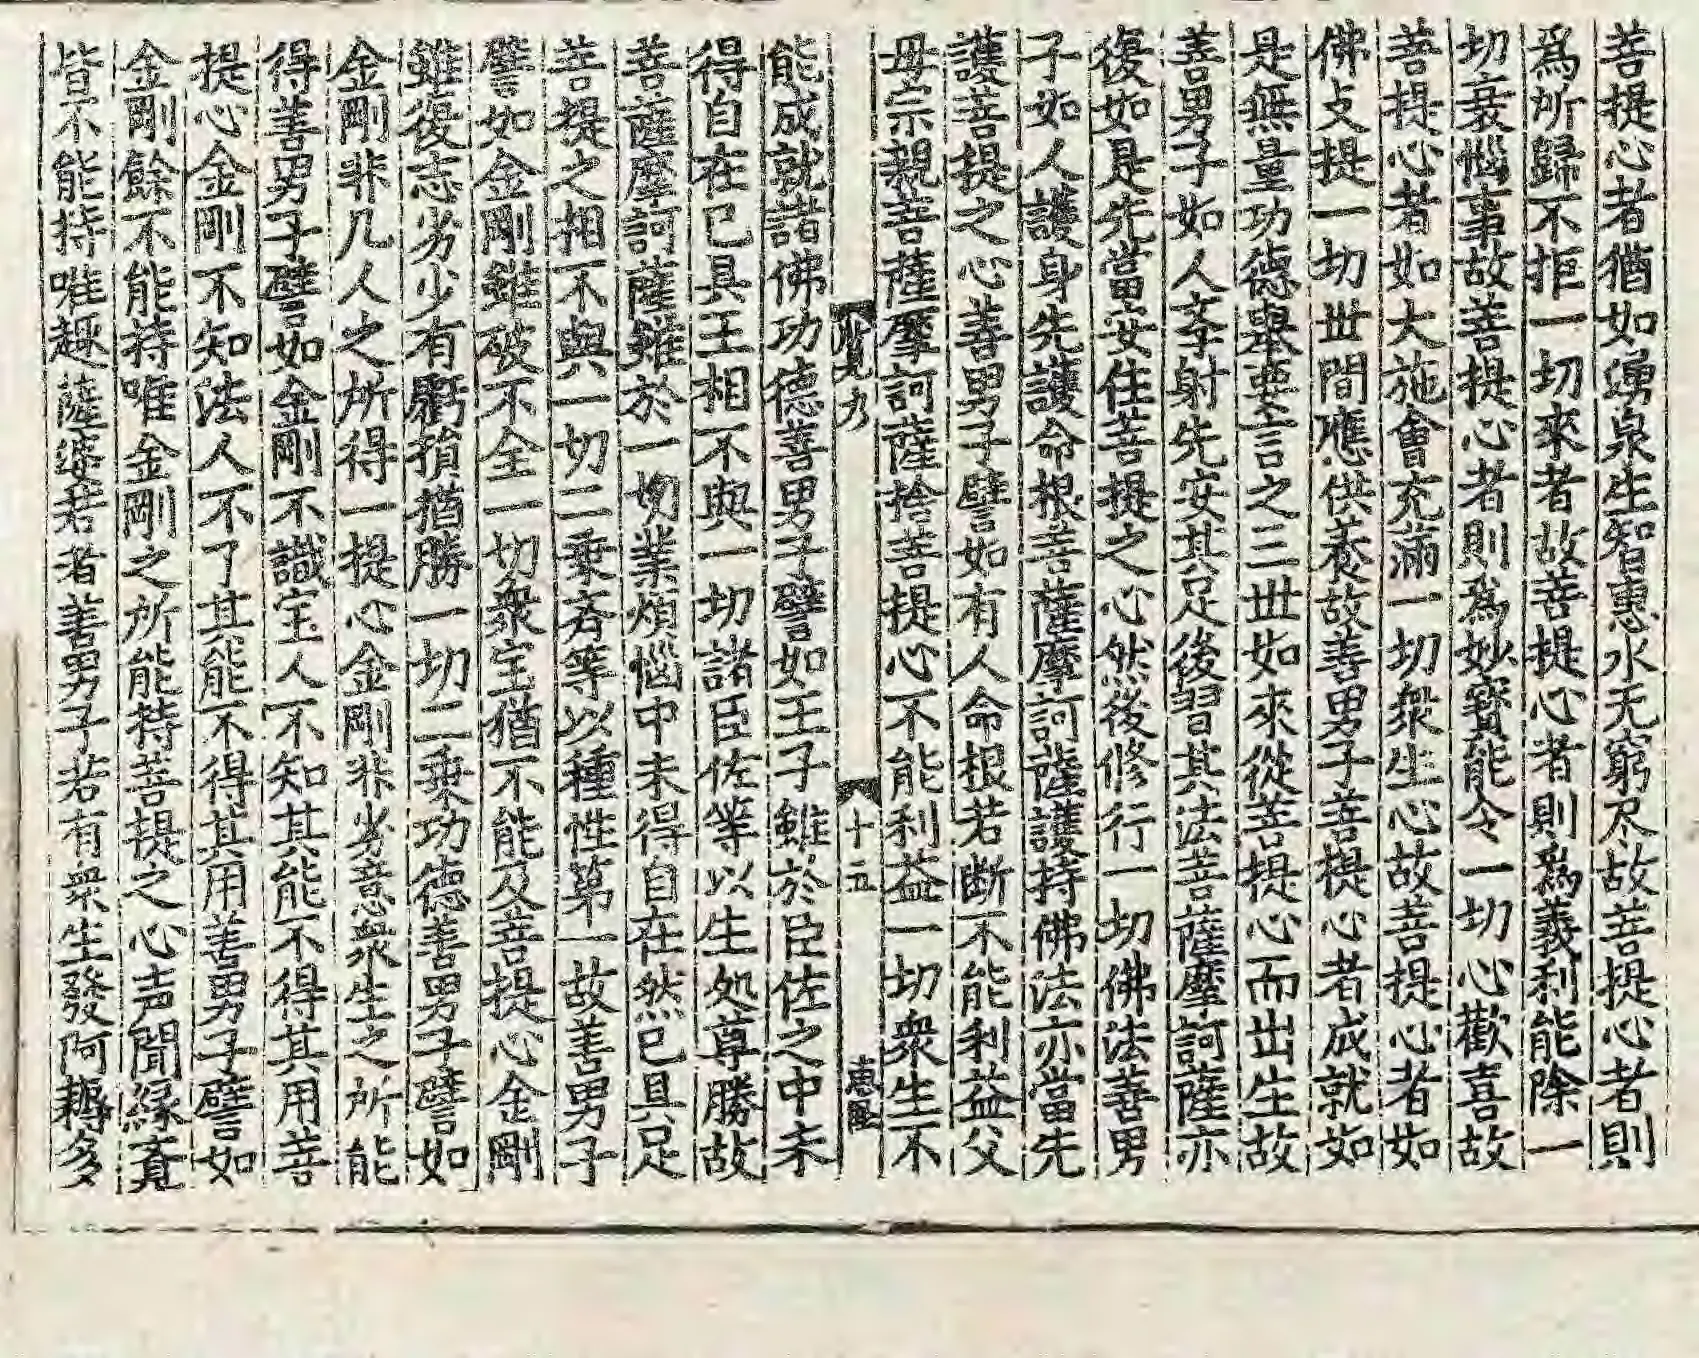 菩提心者猶如湧泉生智惠水无窮尽故菩提心者則
爲所歸不拒一切來者故菩提心者則為義利能除一
切衰惱事故菩提心者則為妙寳能令一切心歡喜故
菩提心者如大施會充滿一切衆生心故菩提心者如
佛支提一切世間應供养故善男子菩提心者成就如
是無量功德舉要言之三世如來從菩提心而出生故
善男子如人孝射先安其足後習其法菩薩摩訶薩亦
復如是先當安住菩提之心然後修行一切佛法善男
子如人護身先護命根菩薩摩訶薩護持佛法亦當先
護菩提之心善男子譬如有人命根若断不能利益父
母宗親菩薩摩訶薩捨菩提心不能利益一切衆生不
十五
能成就諸佛功德善男子譬如王子雖於臣佐之中未
得自在已具王相不與一切諸臣佐等以生処尊勝故
菩薩摩訶薩雖於一切業煩惱中未得自在然已具足
菩提之相不與一切二乗斉等以種性第一故善男子
譬如金剛雖破不全一切衆宝猶不能及菩提心金剛
雖復志劣少有虧損猶勝一切二乗功德善男子譬如
金剛非凡人之所得一提心金剛非劣意衆生之所能
得善男子譬如金剛不識宝人不知其能不得其用菩
提心金剛不知法人不了其能不得其用善男子譬如
金剛餘不能持唯金剛之所能持菩提之心声聞縁覔
皆不能持唯趣薩婆若者善男子若有衆生發阿耨多